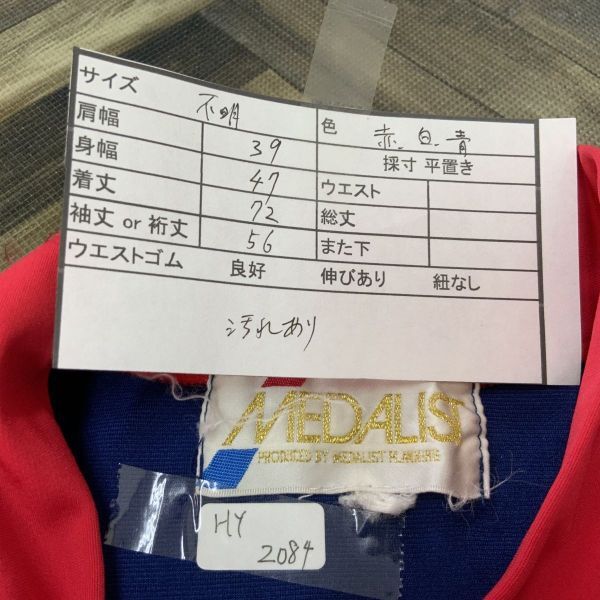 サイズ 不明
肩幅 39 色 赤、白、青
身幅 47 採寸 平置き
着丈 72 ウエスト
袖丈 or 裄丈 56 総丈
また下
ウエストゴム 良好 伸びあり 紐なし
汚れあり
MEDALIST
PRODUCED BY MEDALIST
HY
2084